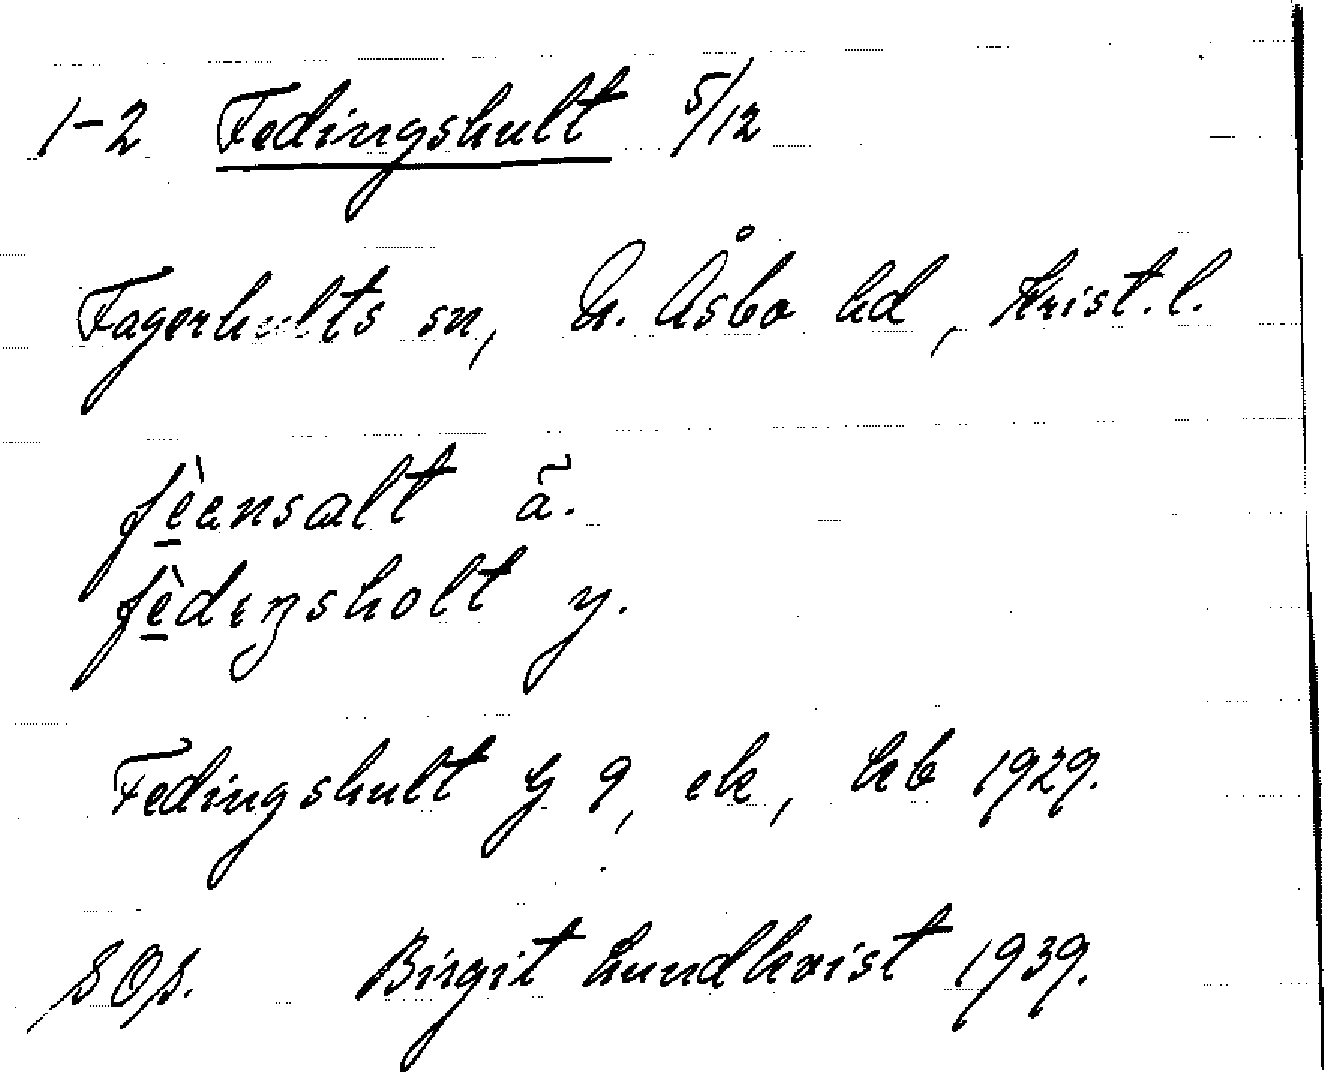 1-2 Fedingshult 5/12
Fagerhults sn, N. Åsbo hd, Krist. l.
fè̱ensalt ã.
fè̱dıŋsholt y.
Fedingshult g 9, ek, kb 1929.
SOS. Birgit Lundkvist 1939.